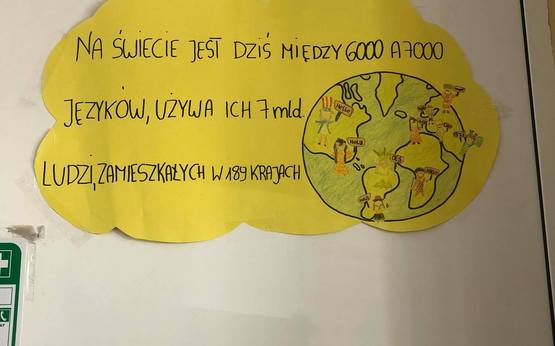 NA ŚWIECIE JEST DZIŚ MIĘDZY 6000 A 7000
JĘZYKÓW, UŻYWA ICH 7 mld.
LUDZI, ZAMIESZKAŁYCH W 189 KRAJACH